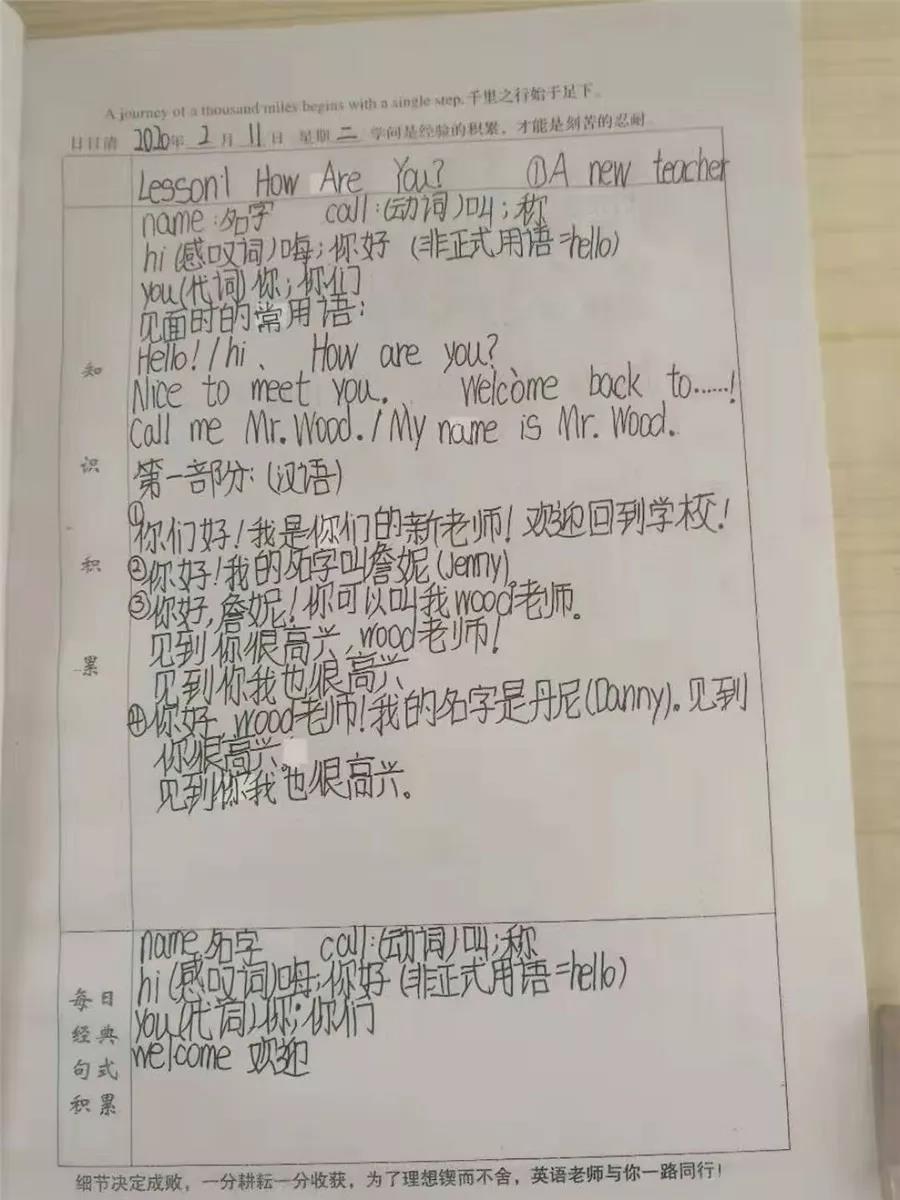 A journey of a thousand miles begins with a single step.千里之行始于足下。
日日清 2020年 2 月 11 日 星期 二 学问是经验的积累，才能是刻苦的忍耐
Lesson1 How Are You? ①A new teacher
name:名字 call:(动词)叫;称
hi(感叹词)嗨;你好 (非正式用语=hello)
you(代词)你;你们
见面时的常用语:
Hello!/hi、 How are you?
Nice to meet you. Welcome back to……!
Call me Mr.Wood./My name is Mr. Wood.
第一部分:(汉语)
①你们好!我是你们的新老师!欢迎回到学校!
②你好!我的名字叫詹妮(Jenny)。
③你好,詹妮!你可以叫我wood老师。
见到你很高兴,wood老师!
见到你我也很高兴
④你好,wood老师!我的名字是丹尼(Danny)。见到
你很高兴。
见到你我也很高兴。
知识积累
name 名字 call:(动词)叫;称
hi(感叹词)嗨;你好(非正式用语=hello)
you(代词)你;你们
welcome 欢迎
每日
经典
句式
积累
细节决定成败，一分耕耘一分收获，为了理想锲而不舍，英语老师与你一路同行！